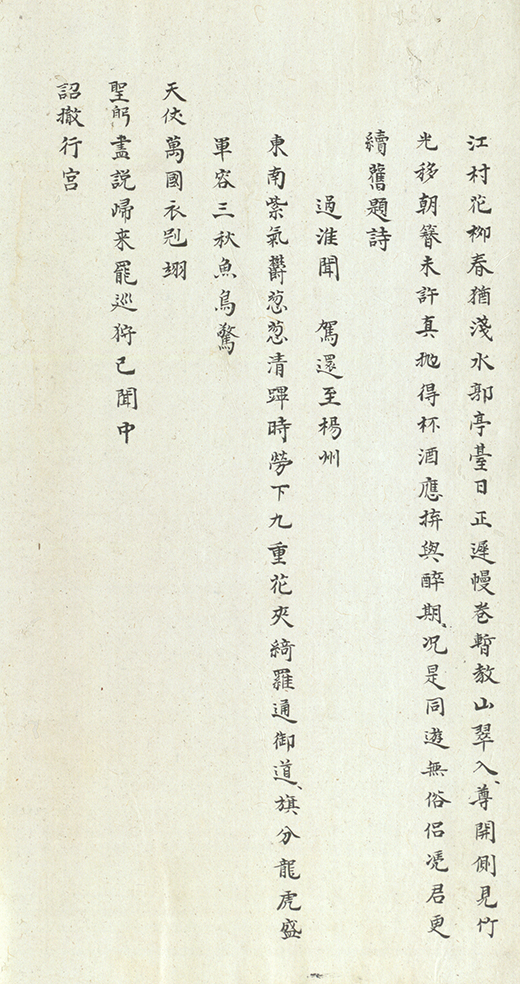 江村花柳春猶淺水郭亭臺日正遲幔卷暫教山翠入尊開側見竹
光移朝簪未許真抛得杯酒應拚與醉期况是同遊無俗侣凴君更
續舊題詩
過淮聞 駕還至楊州
東南紫氣欝葱葱清蹕時勞下九重花夾綺羅通御道旗分龍虎盛
軍容三秋魚鳥驚
天仗萬國衣冠翊
聖躬盡説歸来罷巡狩已聞中
詔撤行宫